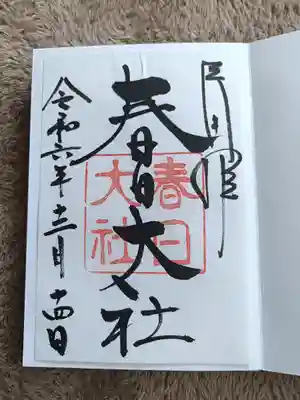 奉拝
春日大社
春日大社
令和六年十二月十四日